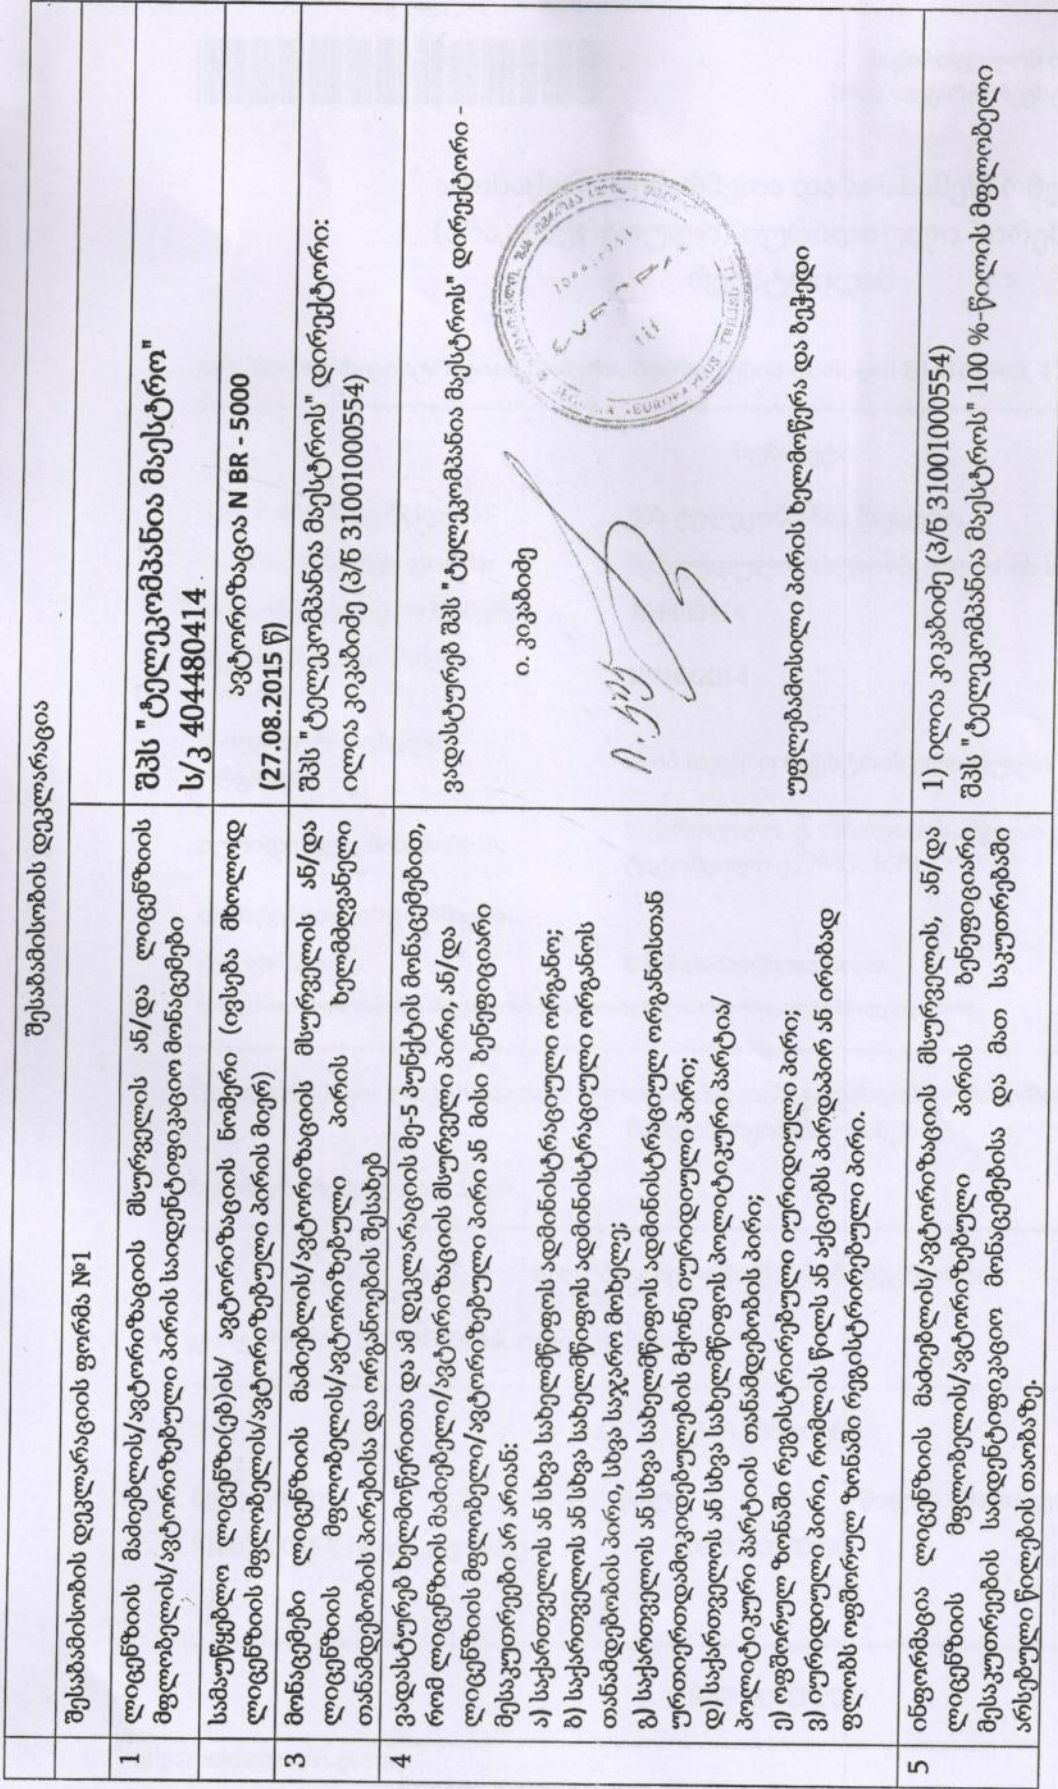 შესაბამისობის დეკლარაცია
შესაბამისობის დეკლარაციის ფორმა №1
1
ლიცენზიის მაძიებლის/ავტორიზაციის მსურველის ან/და ლიცენზიის
მფლობელის/ავტორიზებული პირის საიდენტიფიკაციო მონაცემები
შპს "ტელეკომპანია მაესტრო"
ს/კ 404480414
სამაუწყებლო ლიცენზი(ებ)ის/ ავტორიზაციის ნომერი (ივსება მხოლოდ
ლიცენზიის მფლობელის/ავტორიზებული პირის მიერ)
ავტორიზაცია N BR - 5000
(27.08.2015 წ)
3
მონაცემები ლიცენზიის მაძიებლის/ავტორიზაციის მსურველის ან/და
ლიცენზიის მფლობელის/ავტორიზებული პირის ხელმძღვანელი
თანამდებობის პირებისა და ორგანოების შესახებ
შპს "ტელეკომპანია მაესტროს" დირექტორი:
ილია კიკაბიძე (პ/ნ 31001000554)
4
ვადასტურებ ხელმოწერითა და ამ დეკლარაციის მე-5 პუნქტის მონაცემებით,
რომ ლიცენზიის მაძიებელი/ავტორიზაციის მსურველი პირი ან/და
ლიცენზიის მფლობელი/ავტორიზებული პირი ან მისი ბენეფიციარი
მესაკუთრეები არ არიან:
ა) საქართველოს ან სხვა სახელმწიფოს ადმინისტრაციული ორგანო;
ბ) საქართველოს ან სხვა სახელმწიფოს ადმინისტრაციული ორგანოს
თანამდებობის პირი, სხვა საჯარო მოხელე;
გ) საქართველოს ან სხვა სახელმწიფოს ადმინისტრაციულ ორგანოსთან
ურთიერთდამოკიდებულების მქონე იურიდიული პირი;
დ) საქართველოს ან სხვა სახელმწიფოს პოლიტიკური პარტია/
პოლიტიკური პარტიის თანამდებობის პირი;
ე) ოფშორულ ზონაში რეგისტრირებული იურიდიული პირი;
ვ) იურიდიული პირი, რომლის წილს ან აქციებს პირდაპირ ან ირიბად
ფლობს ოფშორულ ზონაში რეგისტრირებული პირი.
ვადასტურებ შპს "ტელეკომპანია მაესტროს" დირექტორი -
ი. კიკაბიძე
უფლებამოსილი პირის ხელმოწერა და ბეჭედი
5
ინფორმაცია ლიცენზიის მაძიებლის/ავტორიზაციის მსურველის, ან/და
ლიცენზიის მფლობელის/ავტორიზებული პირის ბენეფიციარი
მესაკუთრეების საიდენტიფიკაციო მონაცემებისა და მათ საკუთრებაში
არსებული წილების თაობაზე.
1)ილია კიკაბიძე (პ/ნ 31001000554)
შპს "ტელეკომპანია მაესტროს" 100 %-წილის მფლობელი